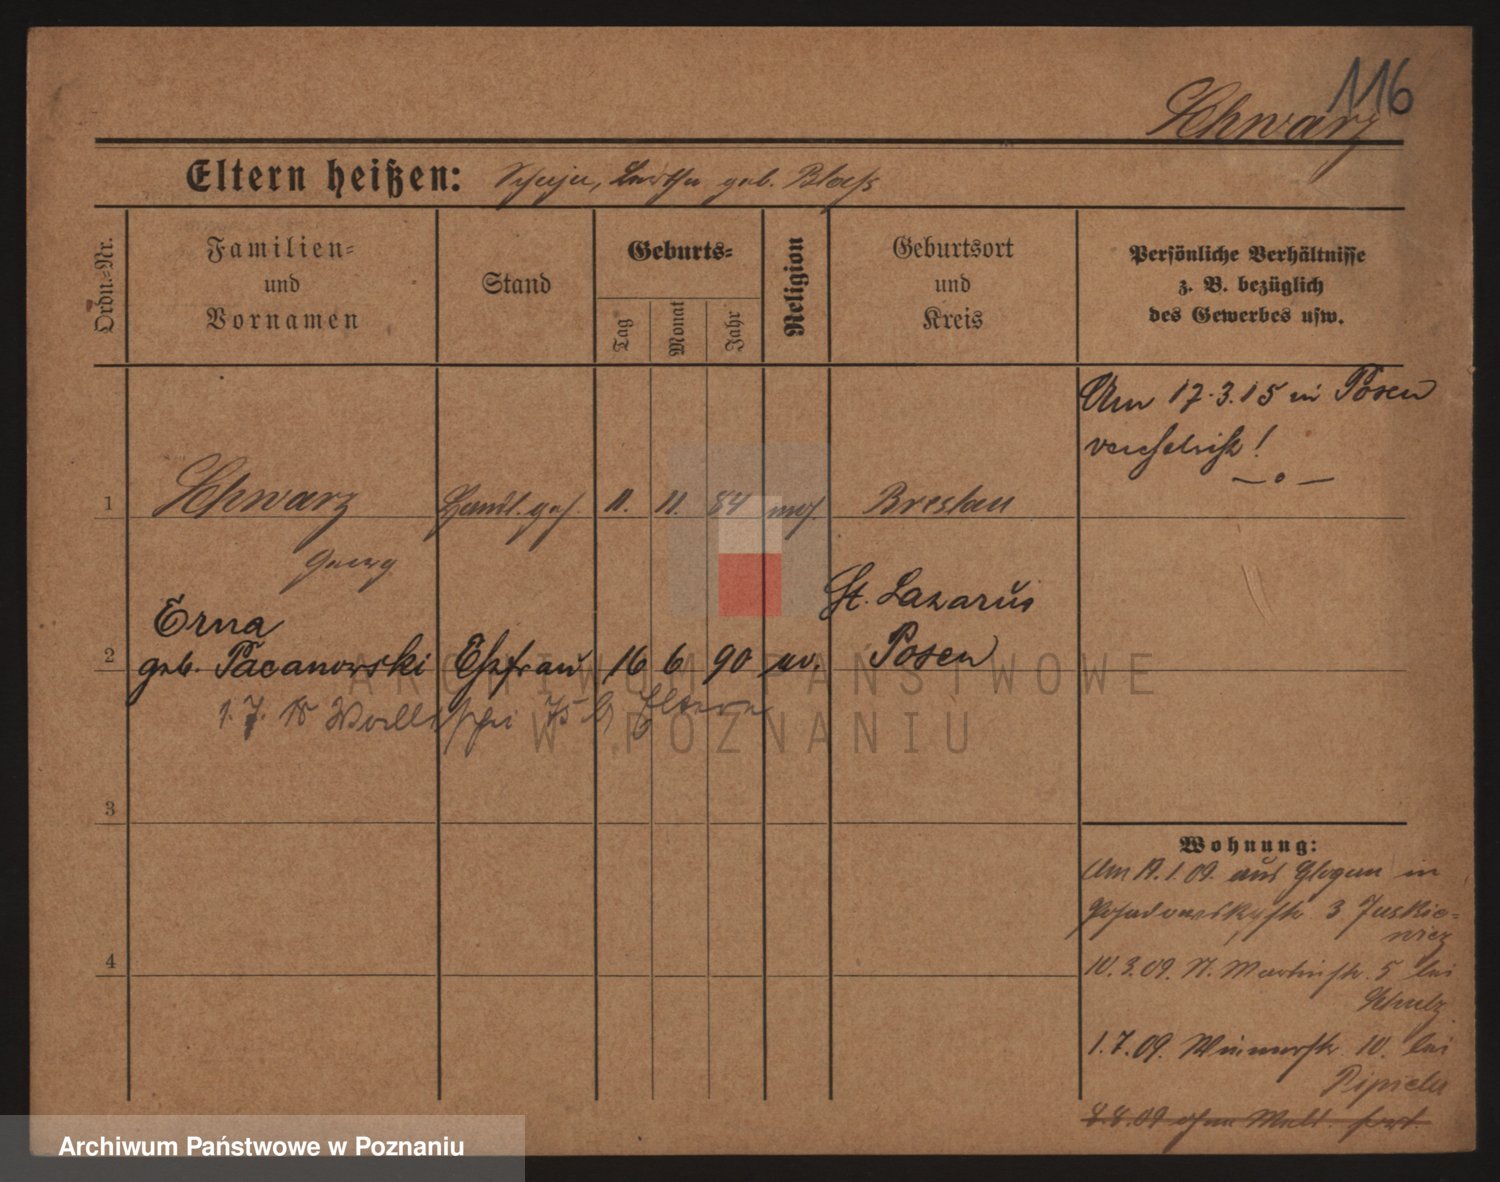 116
Schwarz
Eltern heißen: geb. Bloch
Ordn.-Nr.
Familien-
und
Vornamen
Stand
Geburts-
Tag
Monat
Jahr
Religion
Geburtsort
und
Kreis
Persönliche Verhältnisse
z. B. bezüglich
des Gewerbes usw.
Am 17.3.15 in Posen
verehelicht!
1 Schwarz Handl. geh. 11. 11. 84 mos. Breslau
Georg
Erna St. Lazarus
2 geb. Pacanowski Ehefrau 16 6 90 ev. Posen
1. 7. 15 Wallischei 75 b Eltern
3
4
Wohnung:
Am 12.1.09. aus Glogau in
Posadowskystr. 3. Juskie-
wicz
10.3.09. St. Martinstr. 5 bei
Schulz
1.7.09. 10. bei
8.8.09 ohne Meld. fort.
ARCHIWUM PAŃSTWOWE
W POZNANIU
Archiwum Państwowe w Poznaniu